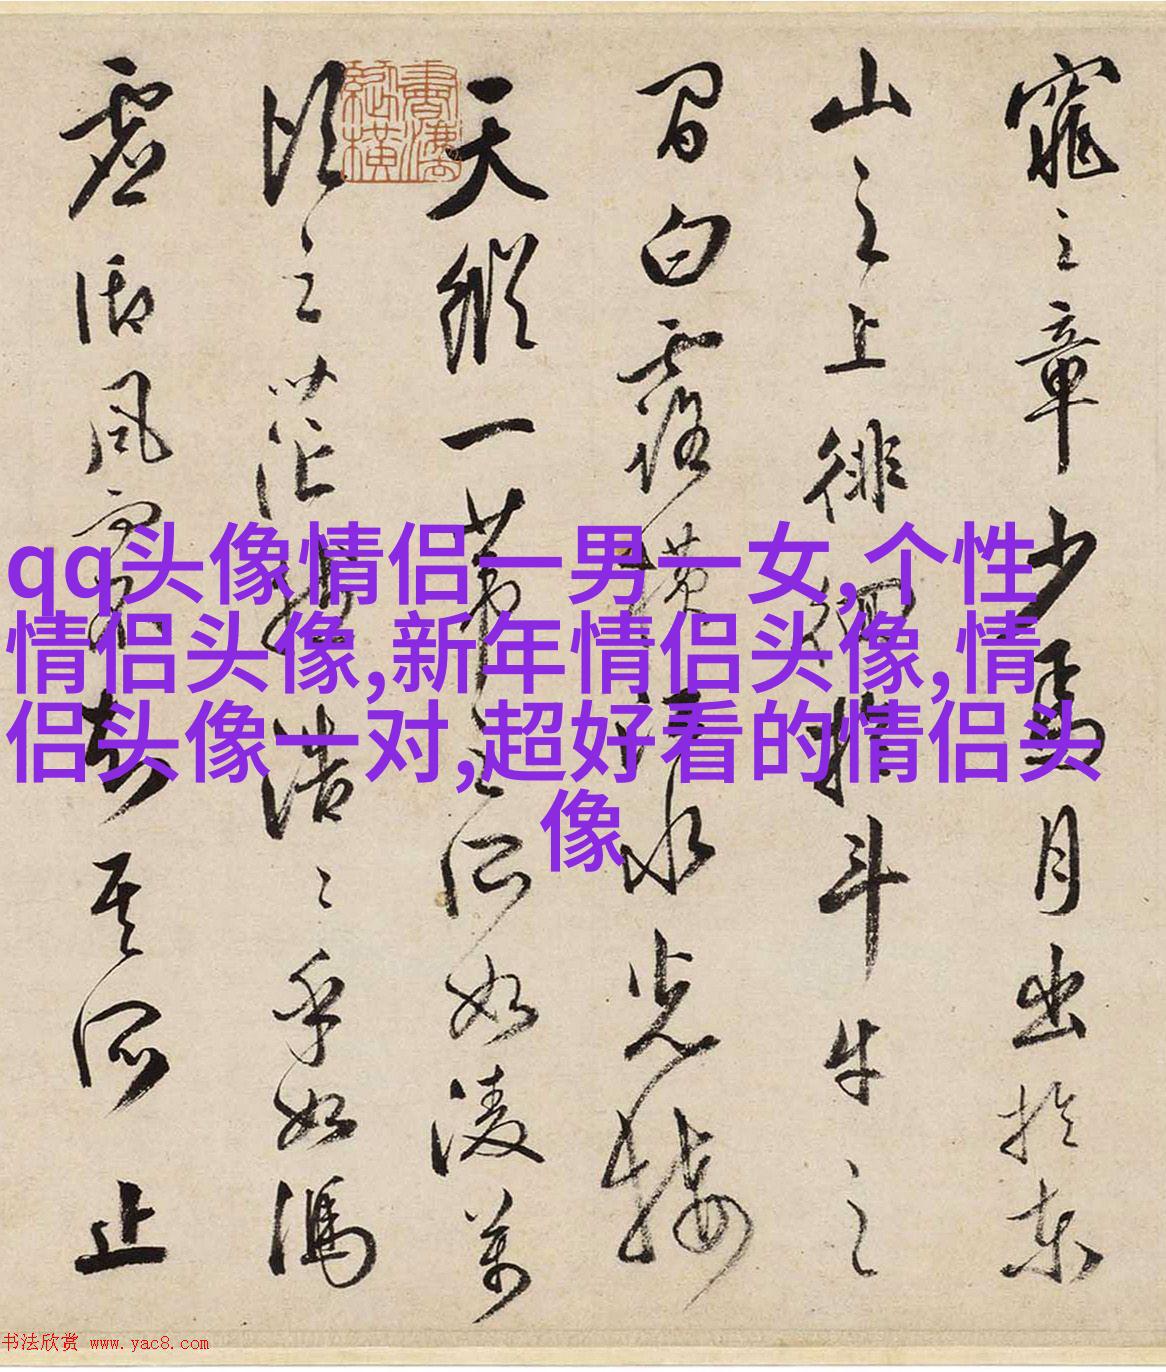 窕之章少焉月出於東
山之上徘徊於斗牛之
間白露橫江水光接
天縱一葦之所如凌萬
頃之茫然浩〻乎如馮
虛御風而不知其所止
qq头像情侣一男一女,个性
情侣头像,新年情侣头像,情
侣头像一对,超好看的情侣头
像
书法欣赏 www.yac8.com